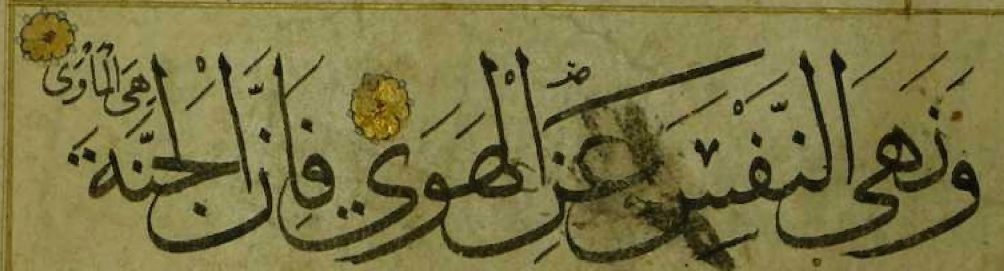 وَنَهَى النَّفْسَ عَنِ الْهَوَى فَإِنَّ الْجَنَّةَ
هِيَ الْمَأْوَى